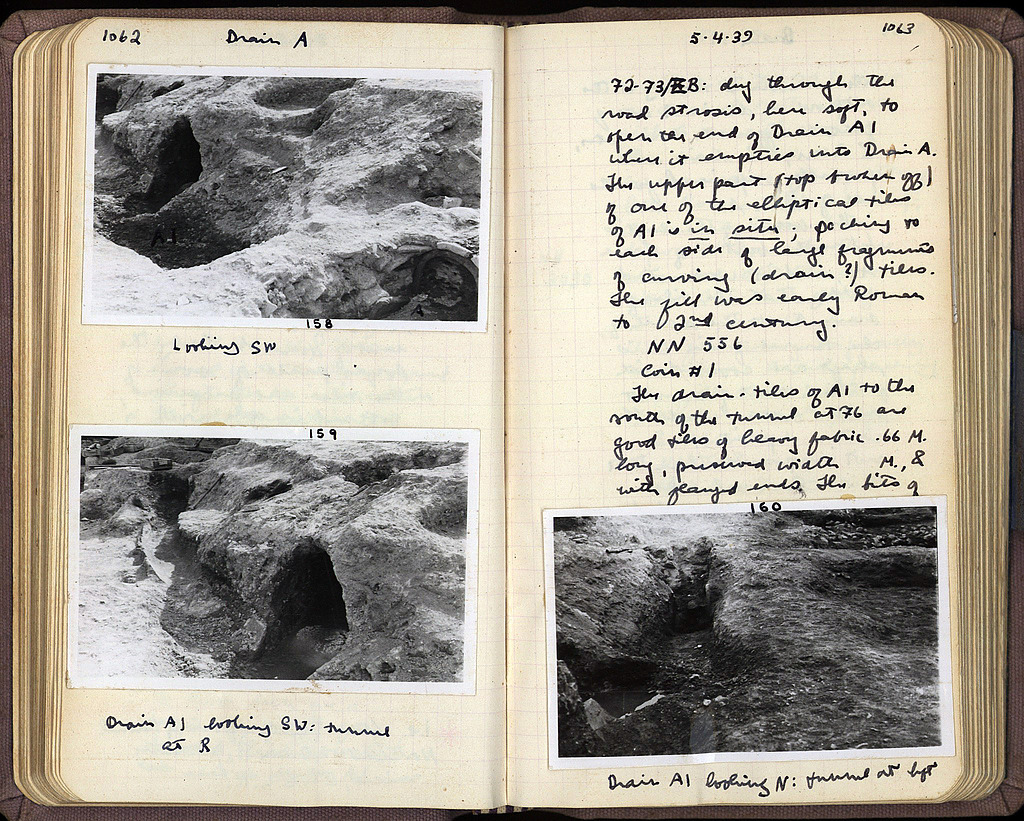 1062 Drain A
A1
A
158
Looking SW
159
Drain A1 looking SW: tunnel
at R
5·4·39 1063
72-73/ B: dug through the
road strosis, here soft, to
open the end of Drain A1
where it empties into Drain A.
The upper part (top broken off)
of one of the elliptical tiles
of A1 is in situ; packing to
each side of large fragments
of curving (drain?) tiles.
The fill was early Roman
to 2nd century.
NN 556
Coin #1
The drain-tiles of A1 to the
south of the tunnel at 76 are
good tiles of heavy fabric .66 M.
long, preserved width M., &
with flanged ends. The bits of
160
Drain A1 looking N: tunnel at left